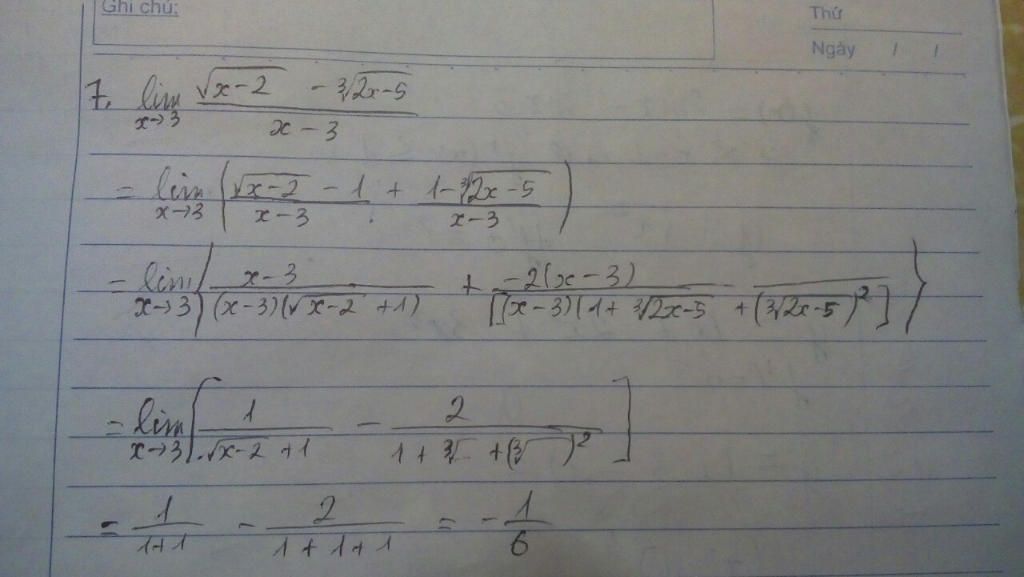 Ghi chú:
Thứ
Ngày / /
7. lim x→3 (√(x-2) - ∛(2x-5))/(x-3)
= lim x→3 ((√(x-2) - 1)/(x-3) + (1-∛(2x-5))/(x-3))
= lim x→3 {(x-3)/((x-3)(√(x-2) +1)) + (-2(x-3))/([(x-3)(1+ ∛(2x-5) +(∛(2x-5))²])}
= lim x→3 [1/(√(x-2) +1) - 2/(1+∛ +(∛ )²)]
= 1/(1+1) - 2/(1+1+1) = -1/6